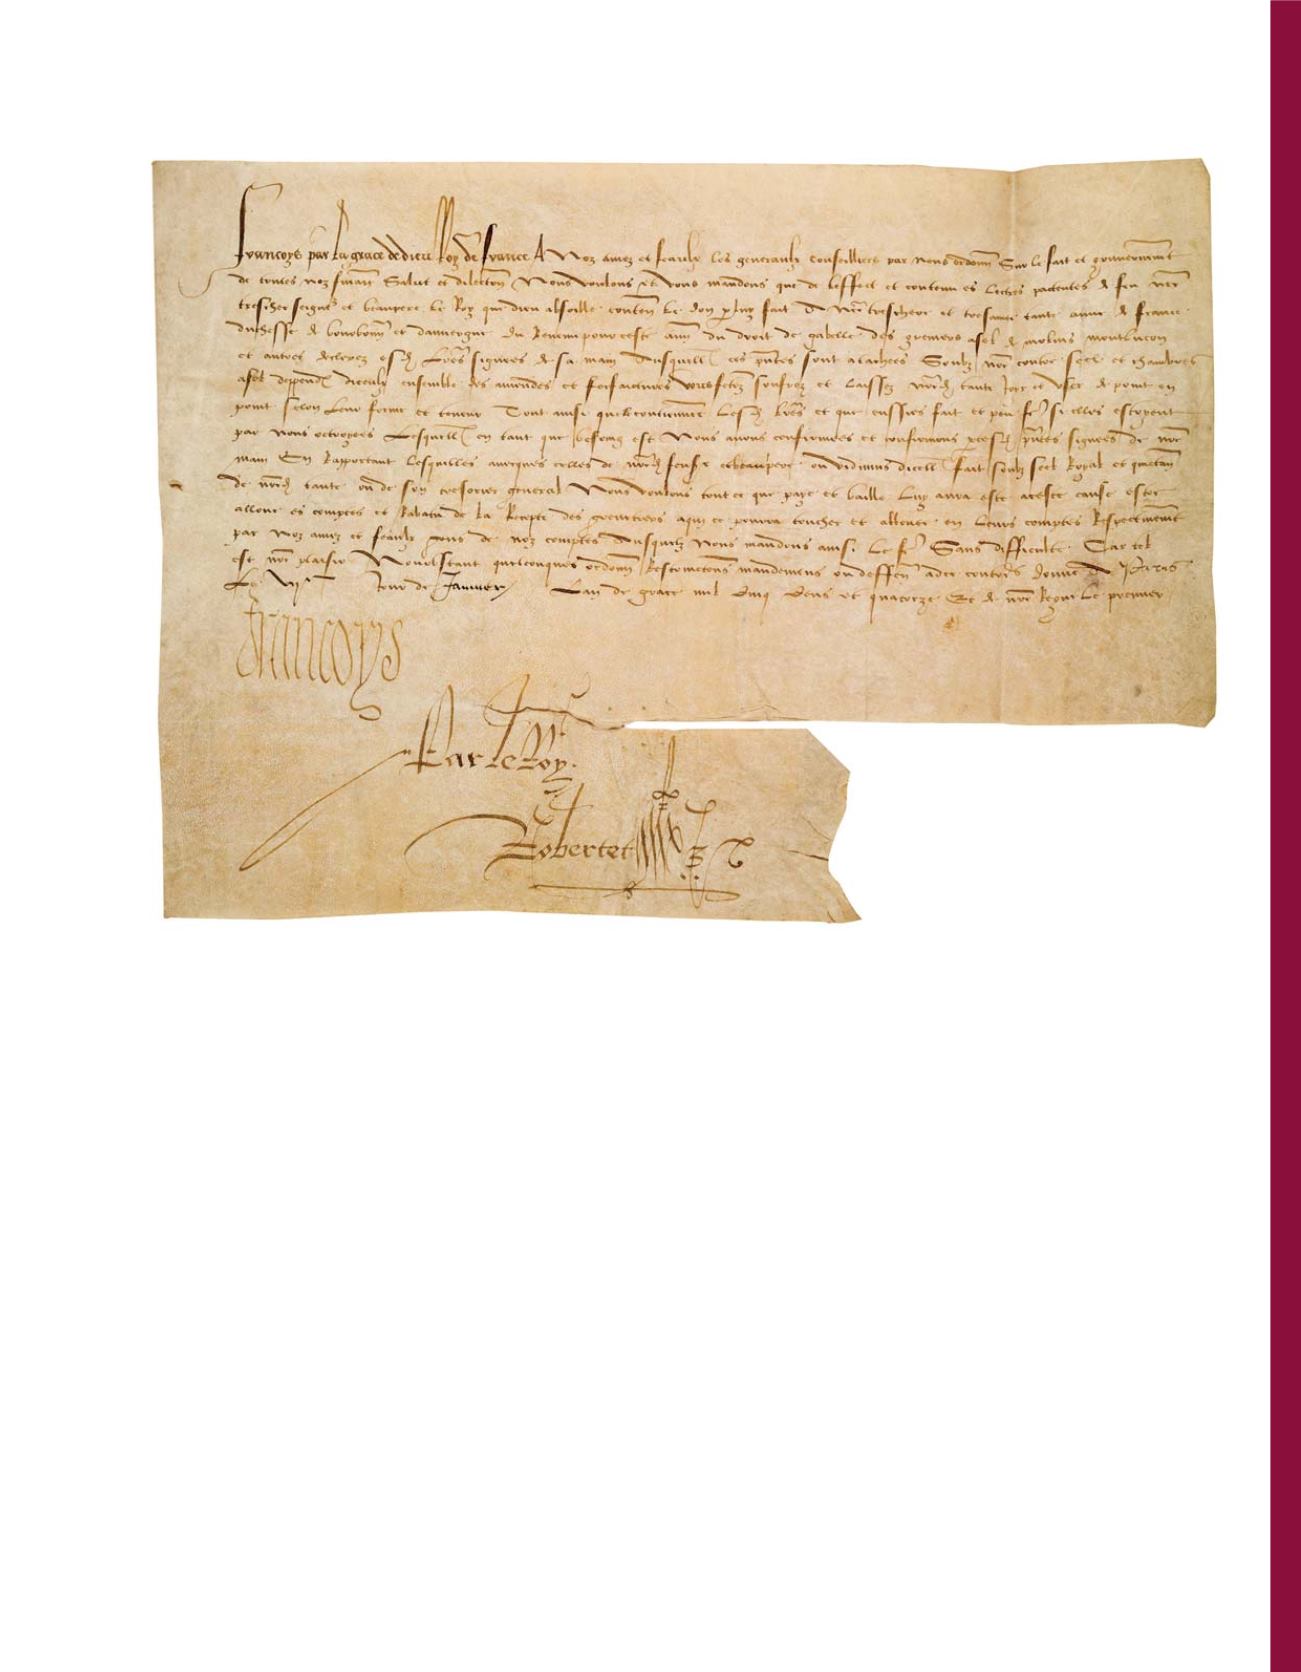 Francoys par la grace de dieu Roy de france A Noz amez et feaulx les generaulx conseilliers par nous ordonn Sur le fait et gouvernment
de toutes noz finan Salut et dilection Nous voulons et vous mandons que de leffect et contenu es lectres pattentes de feu nre
trescher seigr et beaupere le Roy que dieu absoille conten le don p luy fait A nre treschere et tresamee tante anne de france
duchesse de bourbonn et dauvergne du Revenu pour ceste ann du droit de gabelle des greniers a sel de molins montlucon
et autres declerez esd lres signees de sa main Ausquell ces pntes sont atachees Soubz nre contre seel et chambres
a sel deppend diceulx ensemble des amendes et forfaictures vous fetez souffrez et laissez nred tante Joyr et user de point en
point selon leur forme et teneur Tout ainsi quilz contiennent lesd lres et que eussies fait et peu fe si elles estoyent
par nous octroyees Lesquell en tant que besoing est Nous avons confirmees et confirmons p cesd pntes signees de nre
main En Rapportant lesquelles avecques celles de nred feu sr et beaupere ou vidimus dicell fait soubz seel Royal et quictan
de nred tante ou de son tresorier general Nous voulons tout ce que paye et baille luy aura este a ceste cause estre
alloue es comptes et Rabatu de la Recepte des grenetiers a qui ce pourra toucher et allouer en leurs comptes Respectivement
par noz amez et feaulx gens de noz comptes Ausquelz Nous mandons ainsi le fe Sans difficulte Car tel
est nre plaisir Nonobstant quelconques ordonn Restrinctions mandemens ou deffen a ce contres donne A Paris
Le Jour de Janvier Lan de grace mil cinq cens et quatorze Et de nre Regne le premier
Francoys
Par le Roy
Robertet